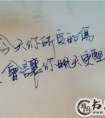 今天你所受的傷
會讓你明天更堅